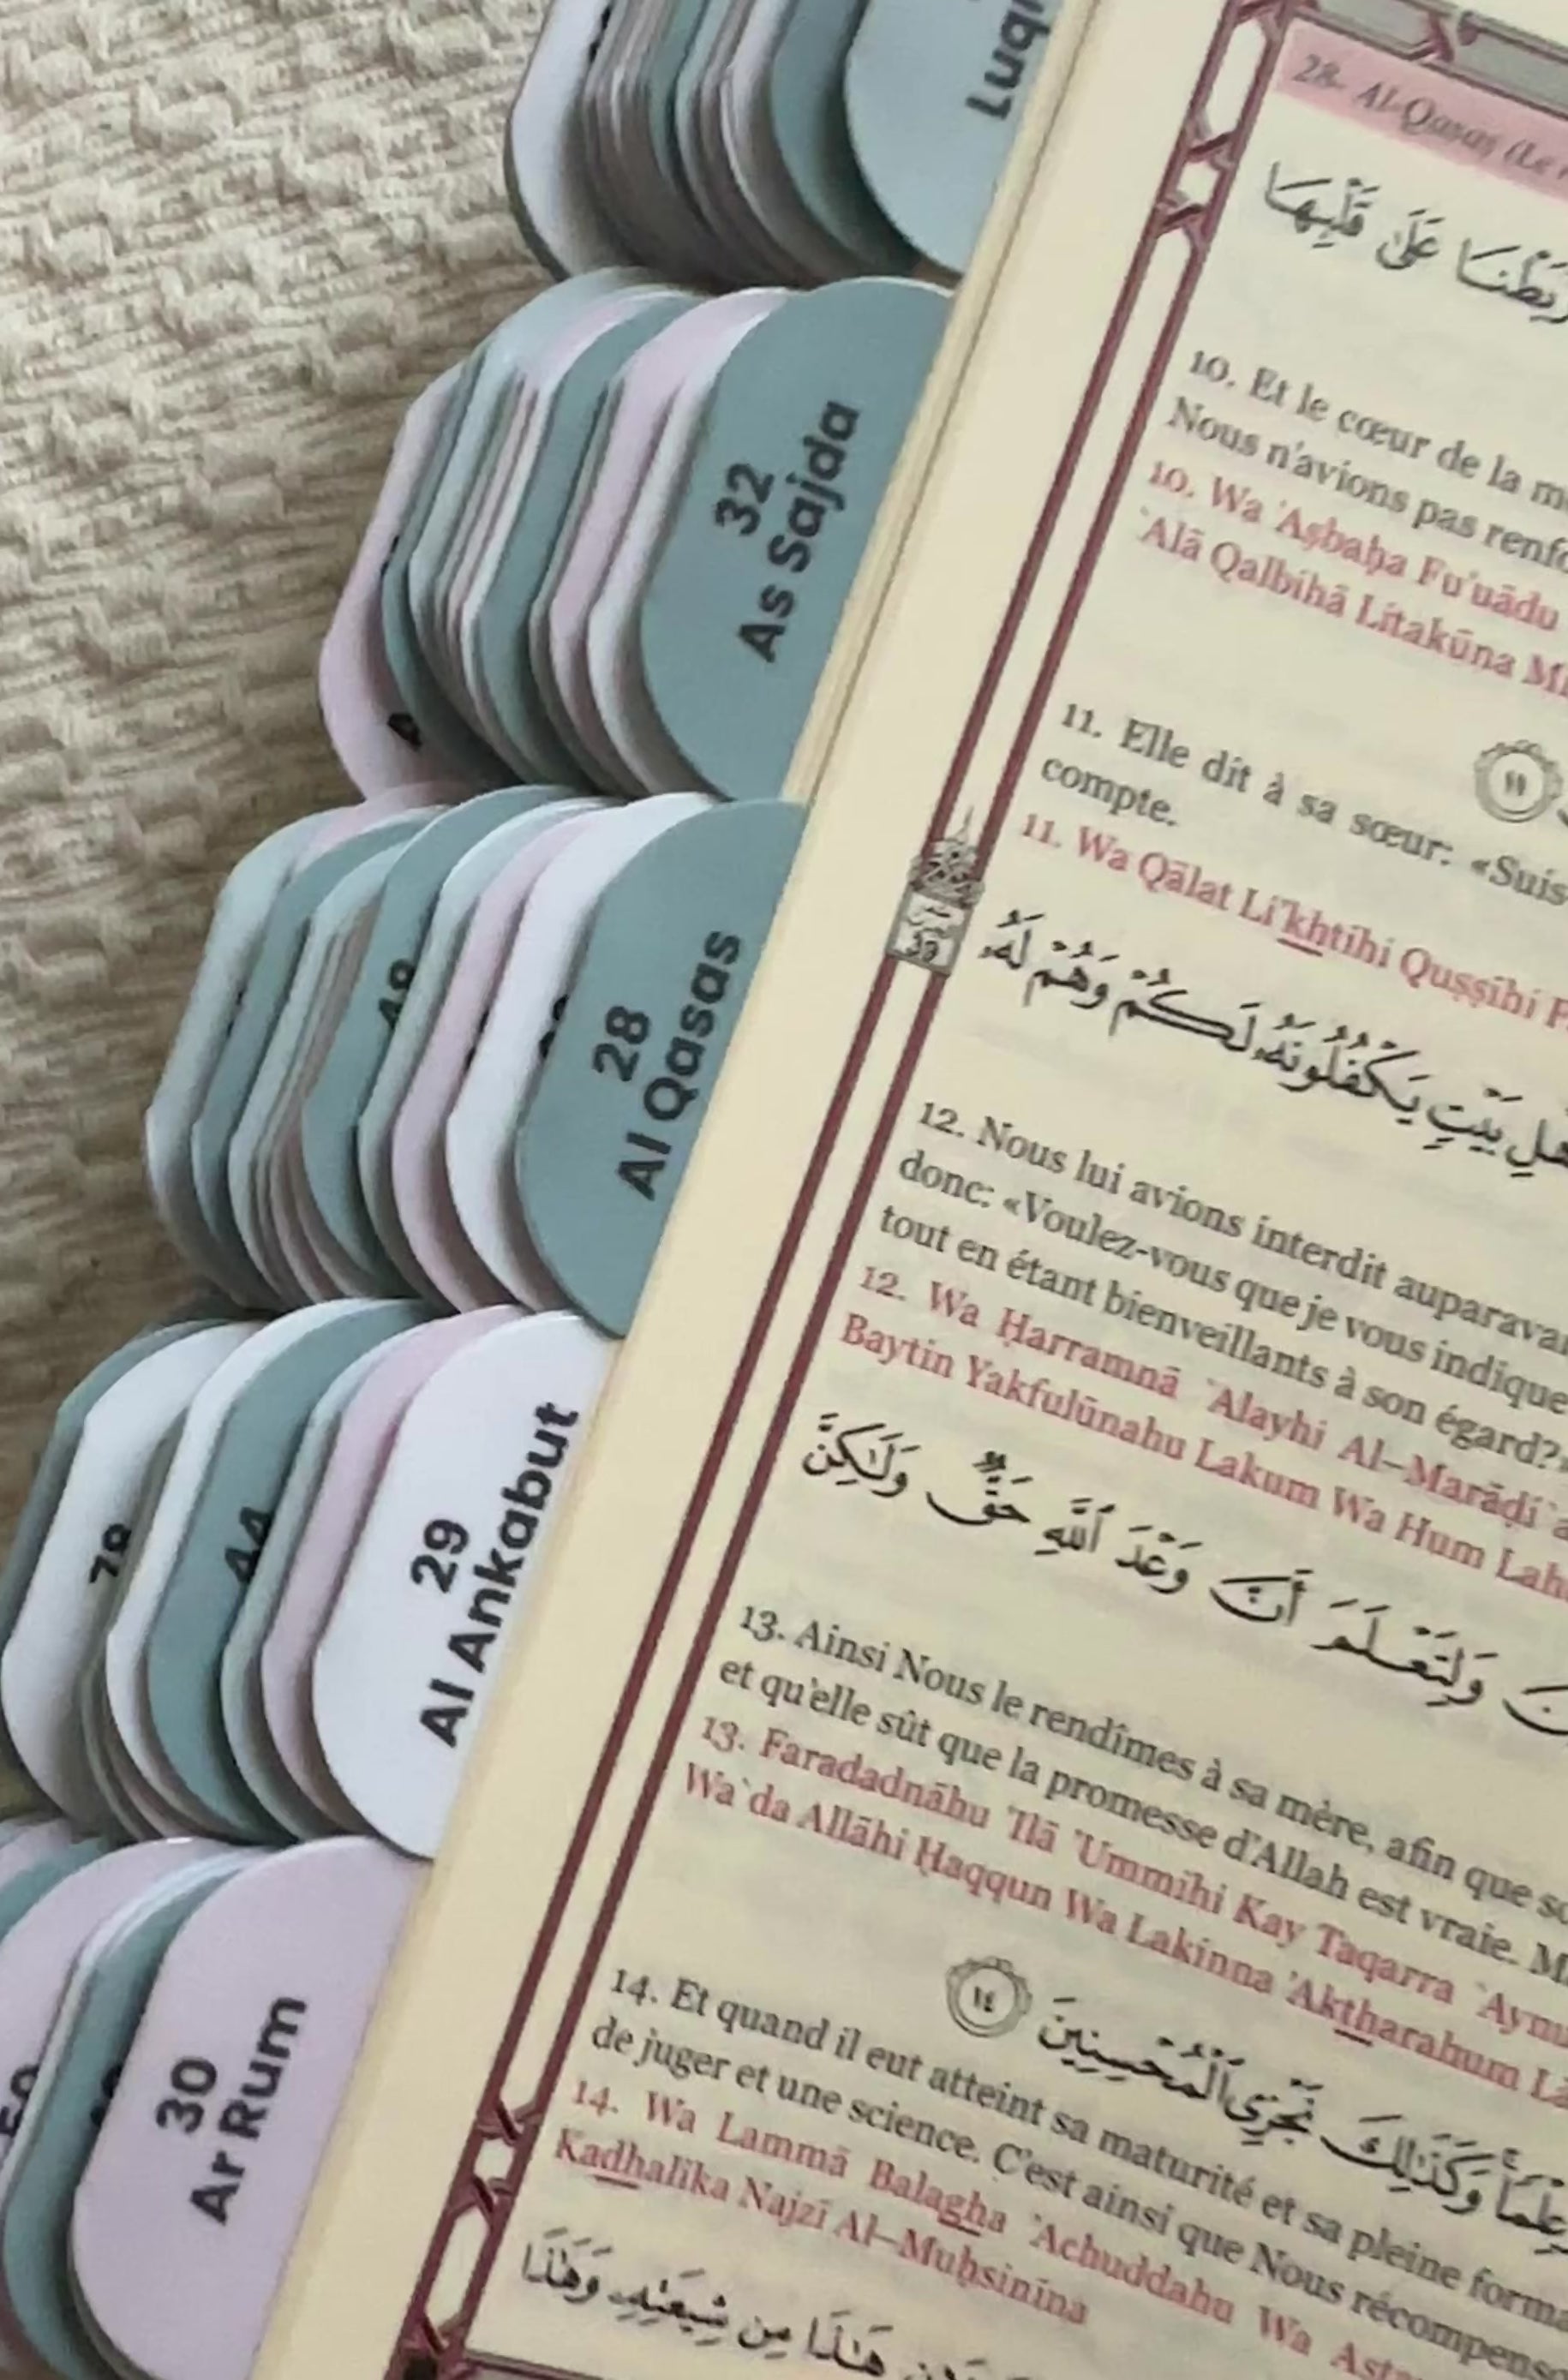 Luq
32
As Sajda
28
Al Qasas
48
29
Al Ankabut
44
78
30
Ar Rum
28- Al-Qasas (Le
عَلَىٰ قَلْبِهَا
10. Et le cœur de la m
Nous n'avions pas renfo
10. Wa 'Aṣbaḥa Fu'uādu
`Alā Qalbihā Litakūna M
١١
11. Elle dit à sa sœur: «Suis
compte.
11. Wa Qālat Li'khtihi Quṣṣīhi F
بَيْتٍ يَكْفُلُونَهُۥ لَكُمْ وَهُمْ لَهُۥ
12. Nous lui avions interdit auparava
donc: «Voulez-vous que je vous indique
tout en étant bienveillants à son égard?»
12. Wa Ḥarramnā `Alayhi Al-Marāḍi`a
Baytin Yakfulūnahu Lakum Wa Hum Lah
وَلِتَعْلَمَ أَنَّ وَعْدَ ٱللَّهِ حَقٌّ وَلَٰكِنَّ
13. Ainsi Nous le rendîmes à sa mère, afin que so
et qu'elle sût que la promesse d'Allah est vraie. M
13. Faradadnāhu 'Ilā 'Ummihi Kay Taqarra `Aynu
Wa`da Allāhi Ḥaqqun Wa Lakinna 'Aktharahum Lā
وَكَذَٰلِكَ نَجْزِى ٱلْمُحْسِنِينَ ١٤
14. Et quand il eut atteint sa maturité et sa pleine forma
de juger et une science. C'est ainsi que Nous récompens
14. Wa Lammā Balagha 'Achuddahu Wa Asta
Kadhalika Najzī Al-Muḥsinīna
هَٰذَا مِن شِيعَتِهِۦ وَهَٰذَا